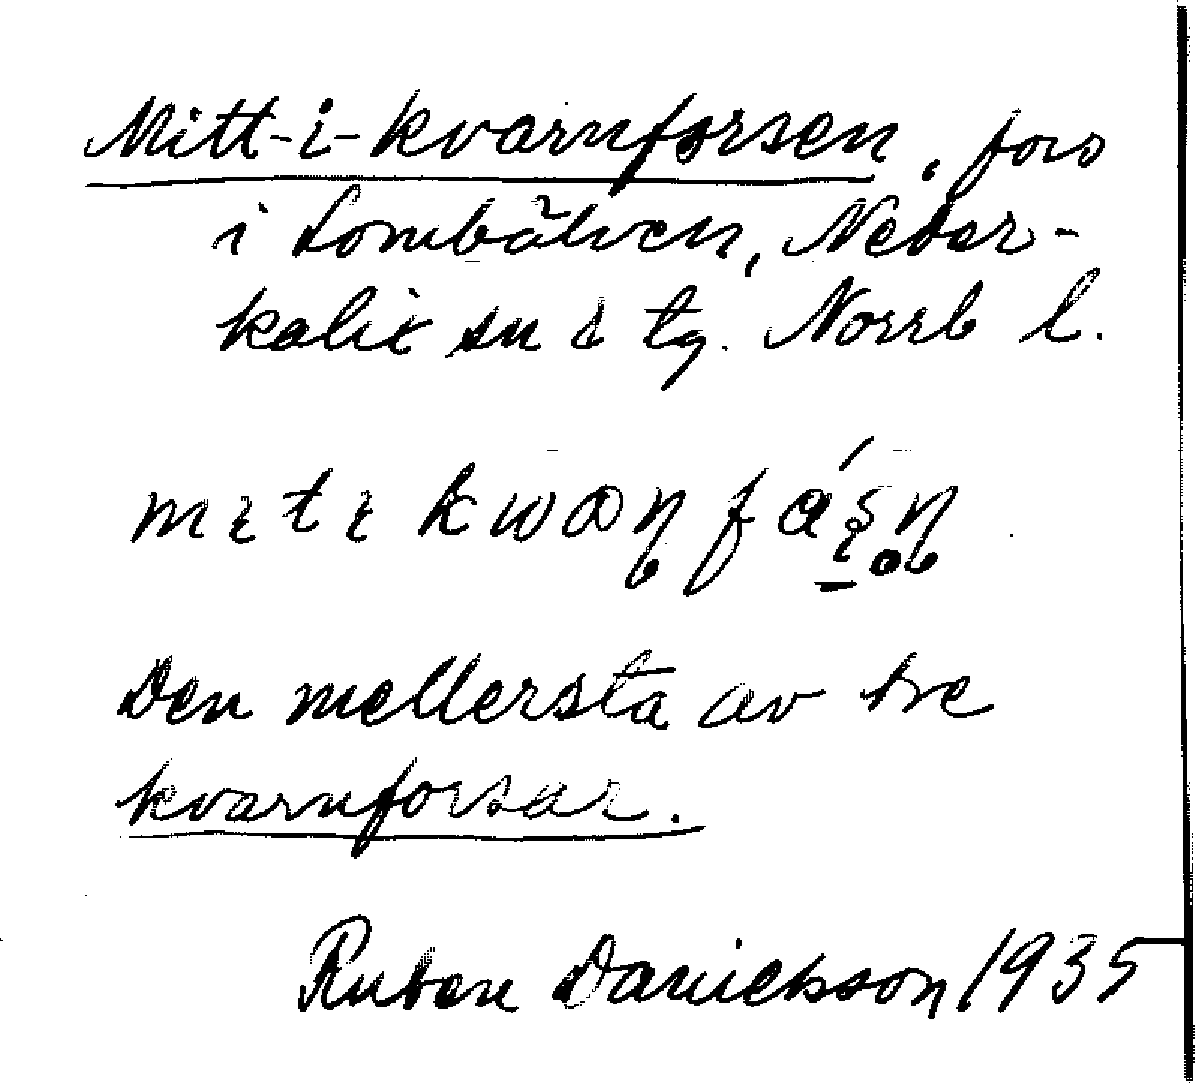 Mitt-i-kvarnforsen, fors
i Lombälven, Neder-
kalix sn o tg. Norrb l.
Den mellersta av tre
kvarnforsar.
Ruben Danielsson 1935